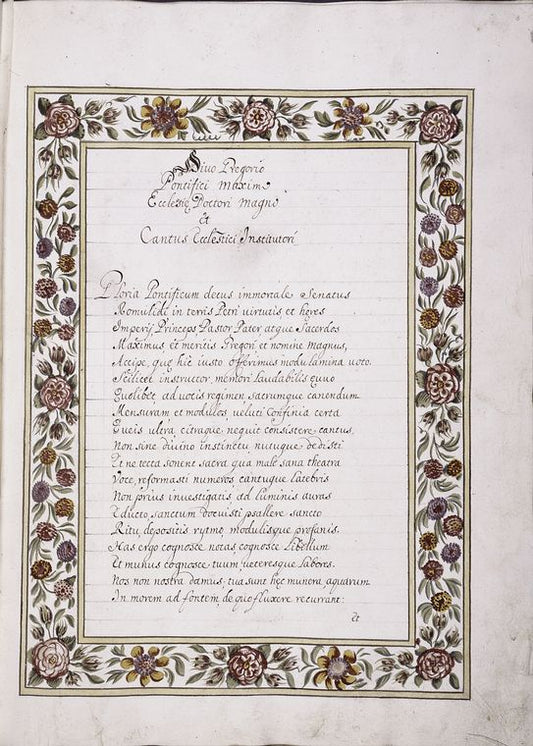 Divo Gregorio
Pontifici Maximo
Ecclesię Doctori Magno
Et
Cantus Ecclesiastici Institutori
Gloria Pontificum decus immortale Senatus
Romulidi in terris Petri virtutis et heres
Imperij Princeps Pastor Pater atque Sacerdos
Maximus, et meritis Gregori et nomine magnus,
Accipe, quę hic iusto offerimus modulamina voto.
Scilicet instructor, memori laudabilis ęuo
Quolibet ad uotis regimen sacrumque canendum
Mensuram et modulos, veluti confinia certa
Queis ultra, citraque nequit consistere cantus,
Non sine divino instinctu nutuque dedisti
Et ne tecta sonent sacra, qua male sana theatra
Voce, reformasti numeros, cantuque latebris
Non prius investigatis, ad luminis auras
Educto, sanctum docuisti psallere sancto
Ritu, depositis rytmo, modulisque profanis.
Has ergo cognosce notas, cognosce Libellum
Et munus cognosce tuum, ueteresque labores.
Nos non nostra damus, tua sunt hęc munera, aquarum
In morem ad fontem, de quo fluxere recurrant:
Et